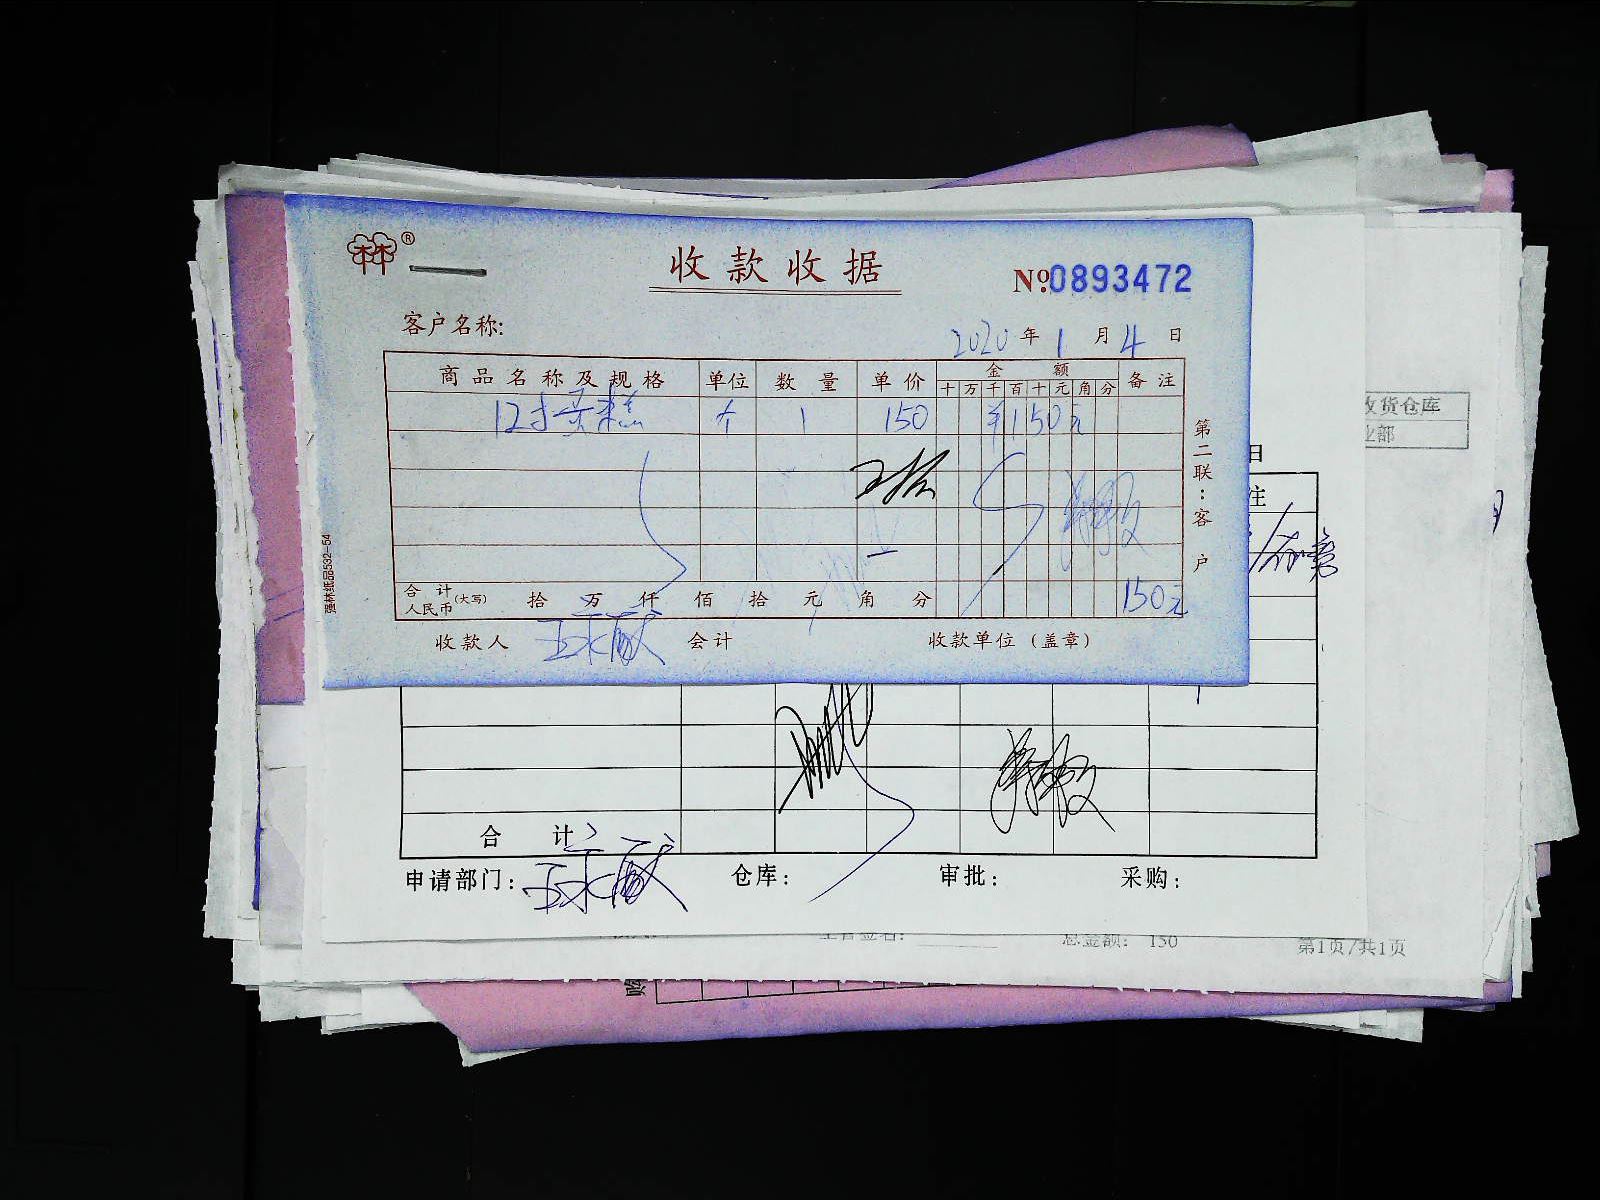 林林®
收款收据
No.0893472
客户名称:
2020年1月4日
商品名称及规格 单位 数量 单价 金额 备注
十万千百十元角分
12寸蛋糕 个 1 150 ¥150元
合计(大写)人民币 拾 万 仟 佰 拾 元 角 分 150元
收款人 会计 收款单位(盖章)
第二联:客户
强林纸品532-54
收货仓库
业部
日
注
合计
申请部门: 仓库: 审批: 采购:
总金额: 150 第1页/共1页
购